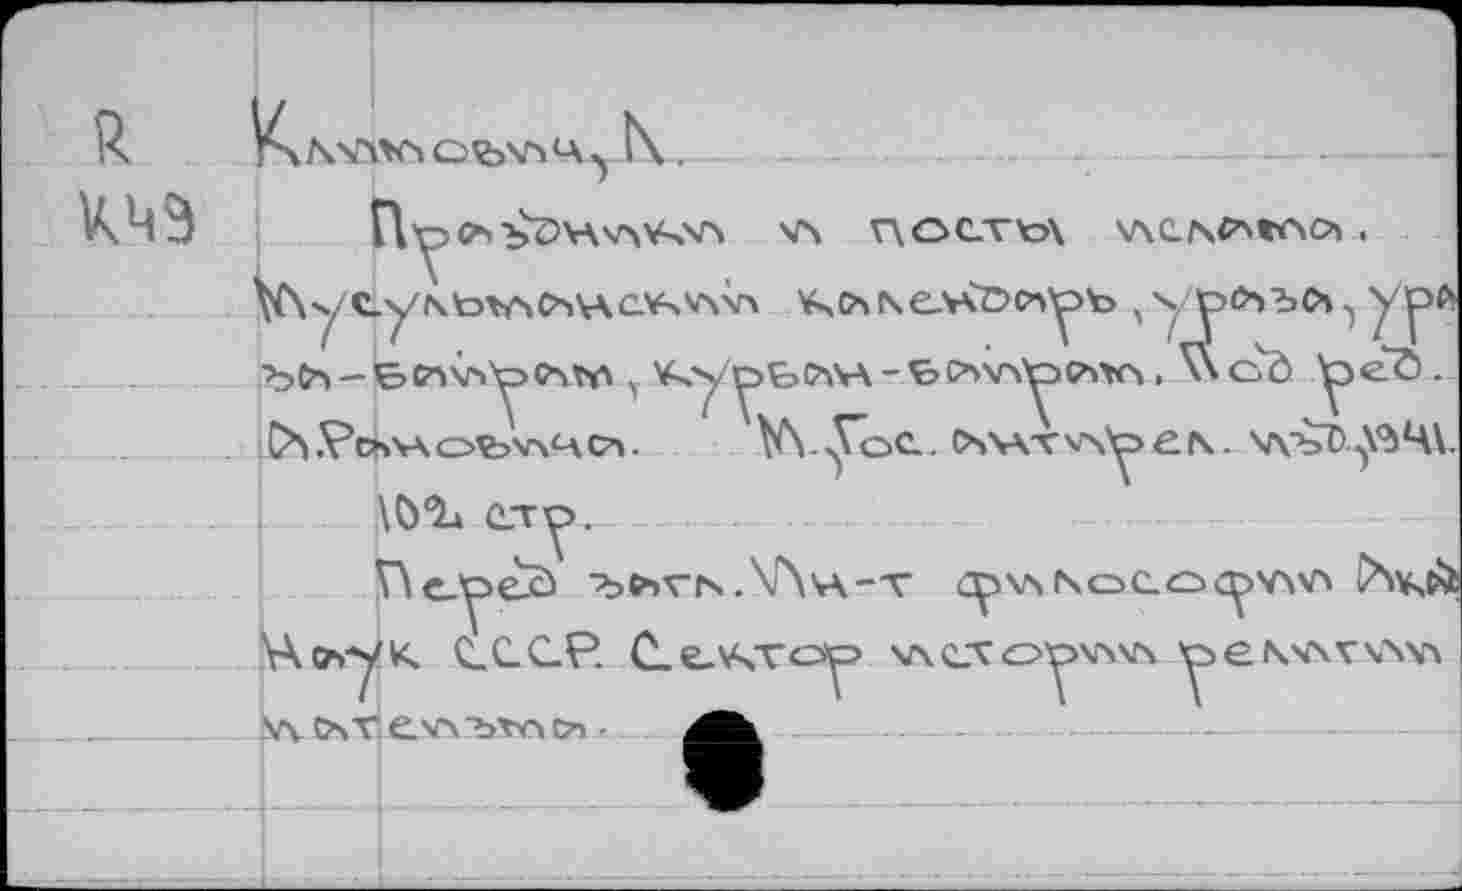 R Климович, Л.
К49 Праздники и посты ислама.
Мусульманский календарь, ураза, ура
за-байрам, курбан-байрам. Под ред.
А.Рановича. М.,Гос. антирел. изд.,1941.
102 стр.
Перед загл.Ин-т философии Акад
Наук СССР. Сектор истории религии
и атеизма.